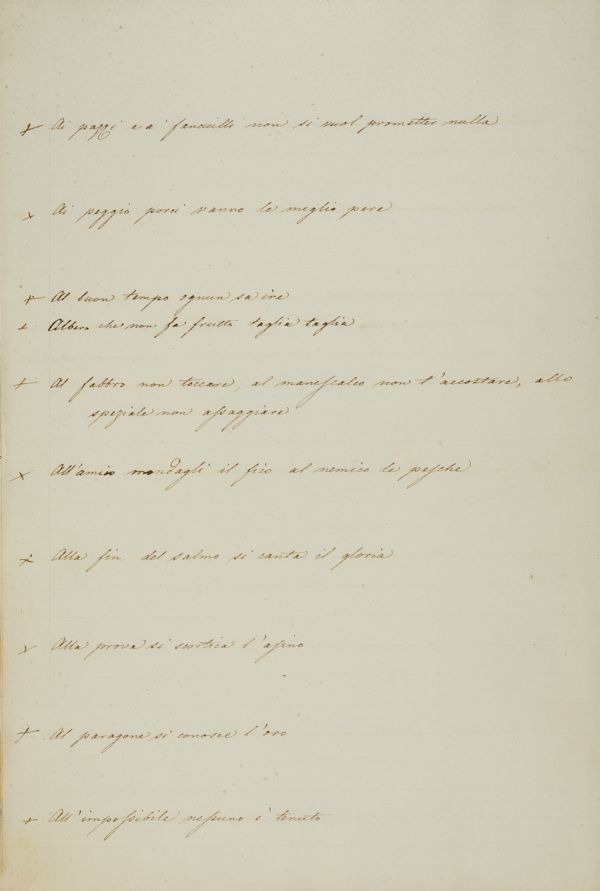 + Ai pazzi e a' fanciulli non si vuol prometter nulla
x Ai peggio porci vanno le meglio pere
+ Al buon tempo ognun sa ire
+ Albero che non fa frutto taglia taglia
+ Al fabbro non toccare, al manescalco non t'accostare, allo
speziale non assaggiare
x All'amico mondagli il fico al nemico le pesche
+ Alla fin del salmo si canta il gloria
x Alla prova si scortica l'asino
+ Al paragone si conosce l'oro
+ All'impossibile nessuno è tenuto